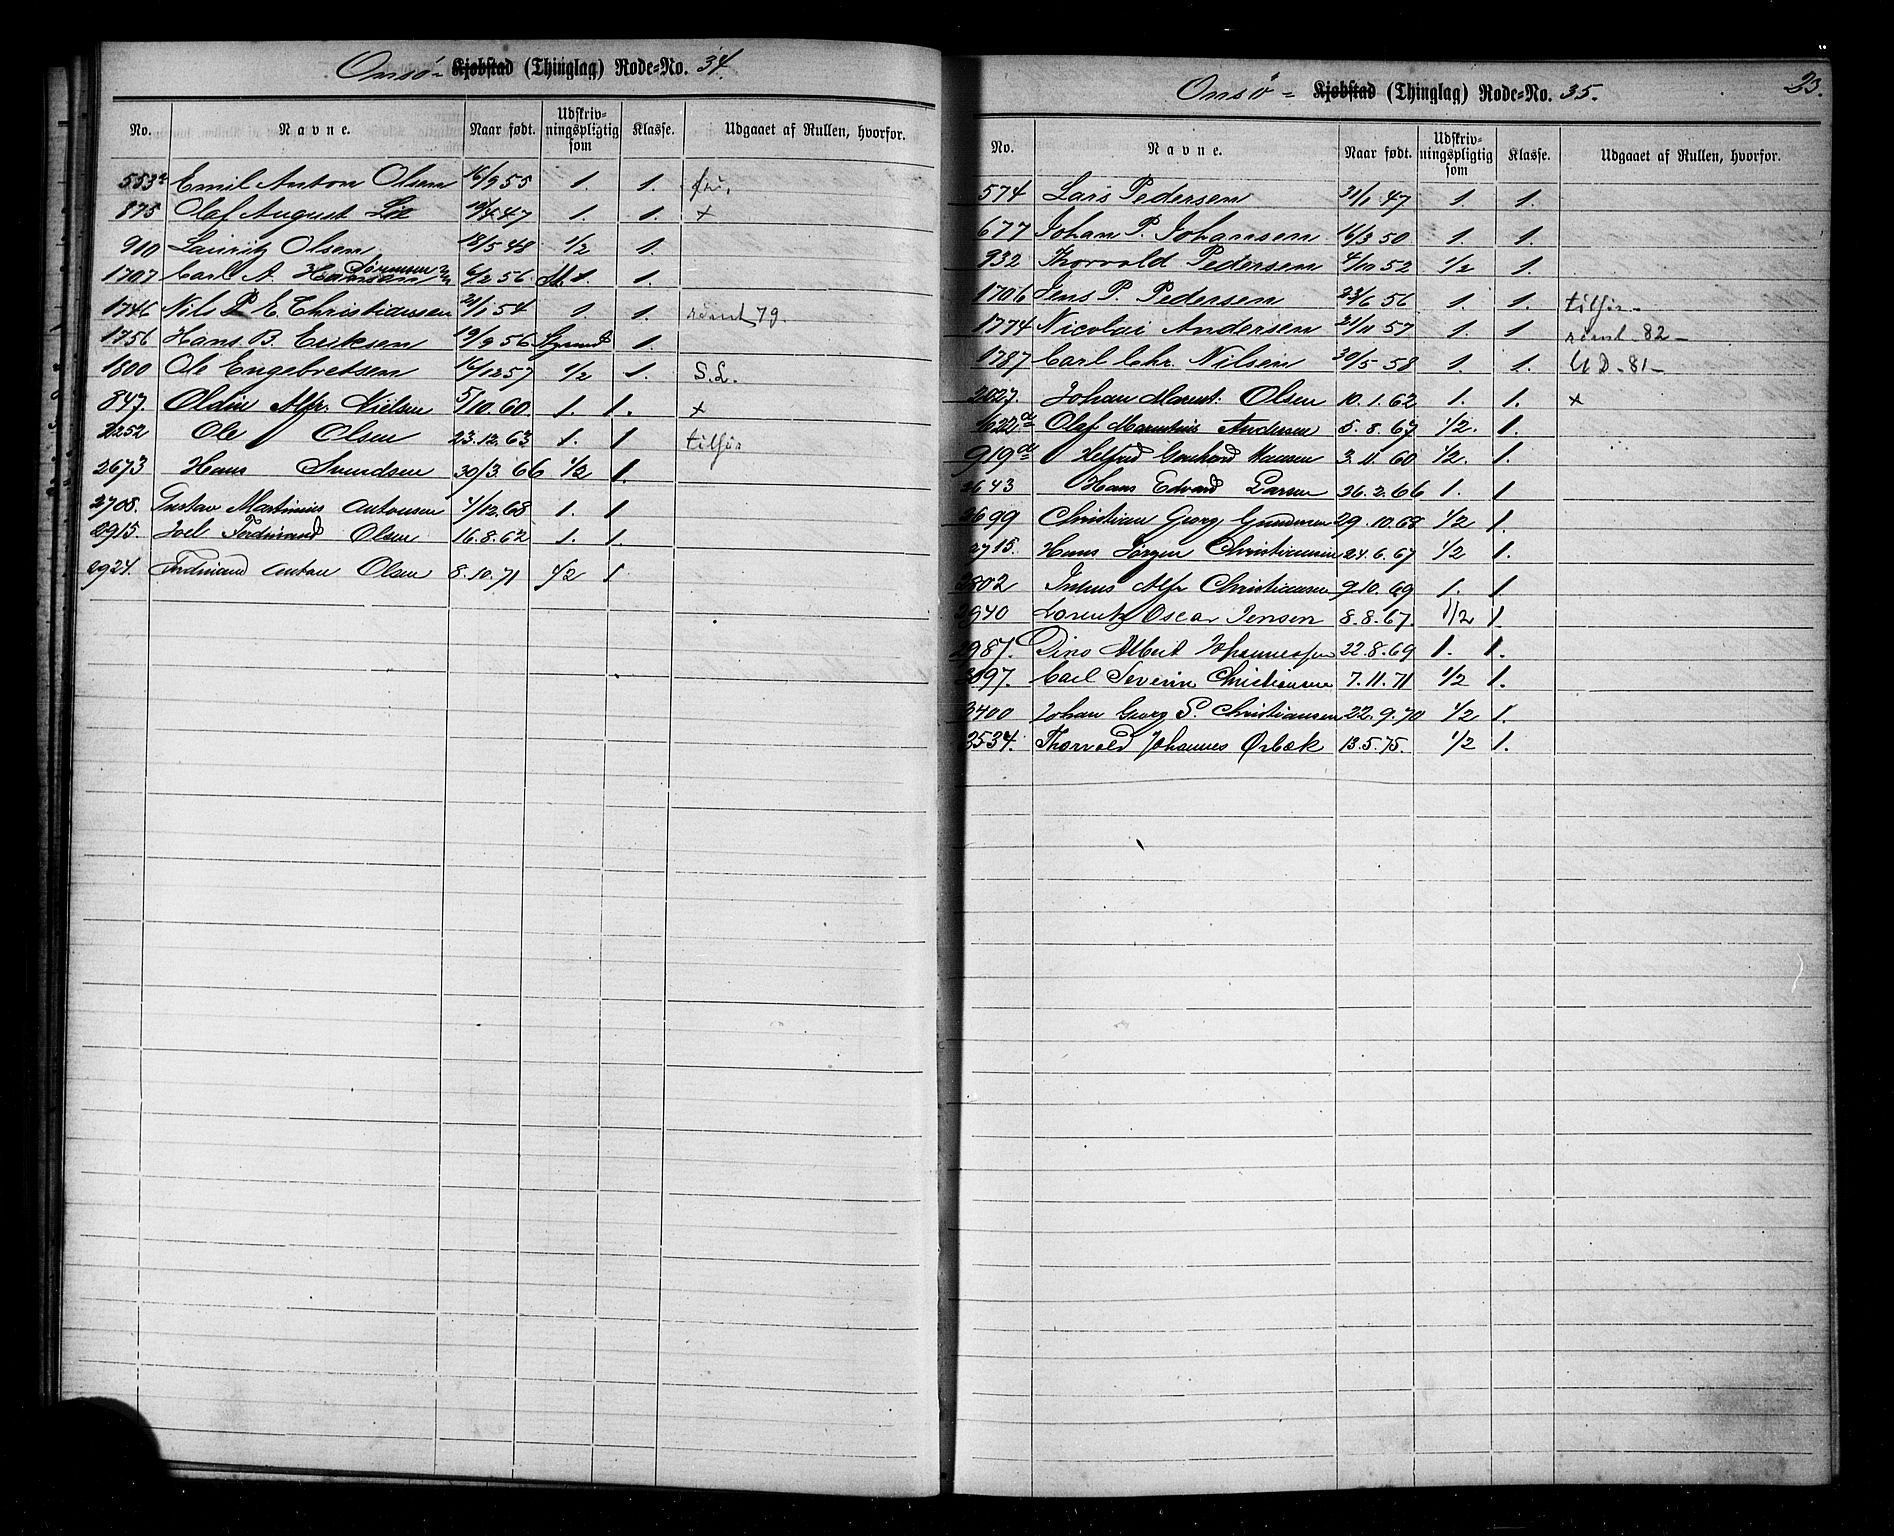 Onsø- Kjøbstad (Thinglag) Rode-No. 34.
No. Navne. Naar født. Udskrivningspligtig som Klasse. Udgaaet af Rullen, hvorfor.
553a Emil Anton Olsen 16/9 55 1. 1. fri.
875 Olaf August Lie 19/4 47 1. 1. +
910 Lauritz Olsen 18/5 48 1/2 1.
1707 Carl A. Hansen Sørensen 6/2 56 1. 1.
1746 Nils P E Christiansen 21/1 54 1. 1. rømt 79.
1756 Hans B. Eriksen 19/9 56 1
1800 Ole Engebretsen 16/12 57 1/2 1. S.L.
847. Oldin Alfr. Nielsen 5/10 60. 1. 1. +
2252 Ole Olsen 23.12.63 1. 1 tilsjøs
2673 Hans Svendsen 30/3 66 1/2 1.
2708. Gustav Martinius Antonsen 4/12.68 1. 1
2915. Joel Ferdinand Olsen 16.8.62 1. 1.
2924. Ferdinand Anton Olsen 8.10.71 1/2 1
Onsø- Kjøbstad (Thinglag) Rode-No. 35. 23.
No. Navne. Naar født. Udskrivningspligtig som Klasse. Udgaaet af Rullen, hvorfor.
574 Lars Pedersen 31/1 47 1. 1.
677 Johan P. Johansen 16/3 50 1. 1.
932 Thorvald Pedersen 4/10 52 1/2 1.
1706 Jens P. Pedersen 23/6 56 1. 1. tilsjøs-
1774 Nicolai Andersen 21/11 57 1. 1. rømt-82-
1787 Carl Chr. Nilsen 30/5-58 1. 1. UD-81-
2027 Johan Marent. Olsen 10.1.62 1. 1. +
1622a Olaf Marentius Andersen 5.8.67 1/2. 1.
919a Helfred Gerhard Hansen 3.11.60 1/2. 1.
2643 Hans Edvard Larsen 26.2.66 1. 1
2699 Christian Georg 29.10.68 1/2 1.
2715. Hans Jørgen Christiansen 24.6.67 1/2 1.
2802 Julius Alfr Christiansen 9.10.69 1. 1
2940 Lorentz Oscar Jensen 8.8.67. 1/2 1.
2987. Dino Albert Johannessen 22.8.69 1. 1.
3097. Carl Severin Christiansen 7.11.71 1/2 1.
3400 Johan Georg S. Christiansen 22.9.70 1/2 1.
3534. Thorvald Johannes Ørbæk 13.5.75. 1/2 1.